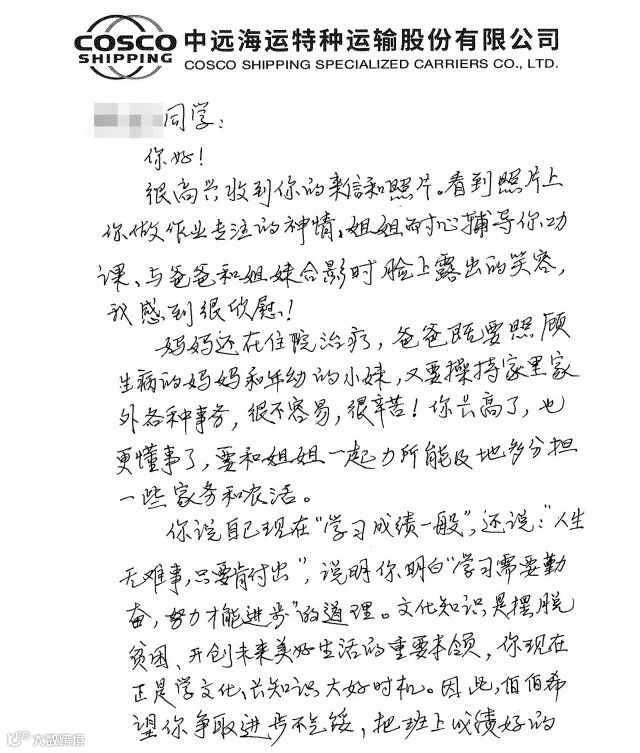 COSCO
SHIPPING
中远海运特种运输股份有限公司
COSCO SHIPPING SPECIALIZED CARRIERS CO., LTD.
同学:
你好!
很高兴收到你的来信和照片。看到照片上
你做作业专注的神情、姐姐耐心辅导你功
课、与爸爸和姐妹合影时脸上露出的笑容,
我感到很欣慰!
妈妈还在住院治疗,爸爸既要照顾
生病的妈妈和年幼的小妹,又要操持家里家
外各种事务,很不容易,很辛苦!你长高了,也
更懂事了,要和姐姐一起力所能及地多分担
一些家务和农活。
你说自己现在“学习成绩一般”,还说:“人生
无难事,只要肯付出”,说明你明白“学习需要勤
奋,努力才能进步”的道理。文化知识是摆脱
贫困、开创未来美好生活的重要本领,你现在
正是学文化、长知识大好时机。因此,伯伯希
望你争取进步不气馁,把班上成绩好的
大数跨境